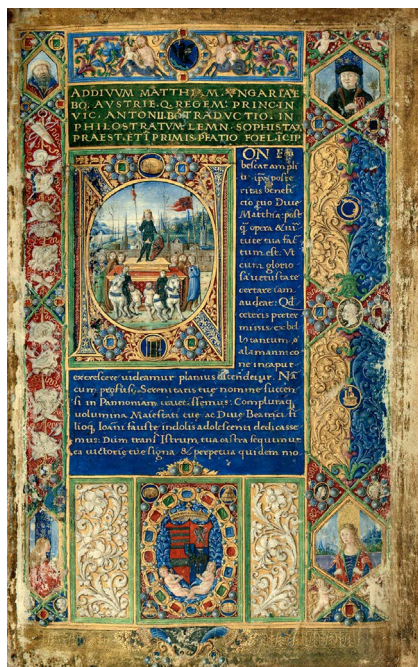 AD DIVVM MATTHIAM VNGARIAE
BQ. AVSTRIE. Q. REGEM: PRINC. IN
VIC. ANTONII. BŌ TRADVCTIO. IN
PHILOSTRATVM. LEMN. SOPHISTĀ
PRAEST. ETI PRIMIS. PFATIO FOELICIP
ON E
bescat ampli
ritas benefi
tio tuo Diue
Matthia: post
opera & uir
tute tua fac
tum est. Vt
cum glorio
sa uetustate
certare iam
audeat: Qd
ceteris preter
missus ex bel
lo tantum
alamannico
ne in caput
excrescere uideamur planius ostendetur. Nā
cum profusi. Serenitatis tue nomine succen
si in Pannoniam aduectssemus: Compluraq.
uolumina Maiestati tue ac Diue Beatrici fi
lioq. Ioani fauste indolis adolescenti dedicasse
mus: Dum trans Istrum tua castra sequimur
ea uictorie tue signa & perpetua quidem mo